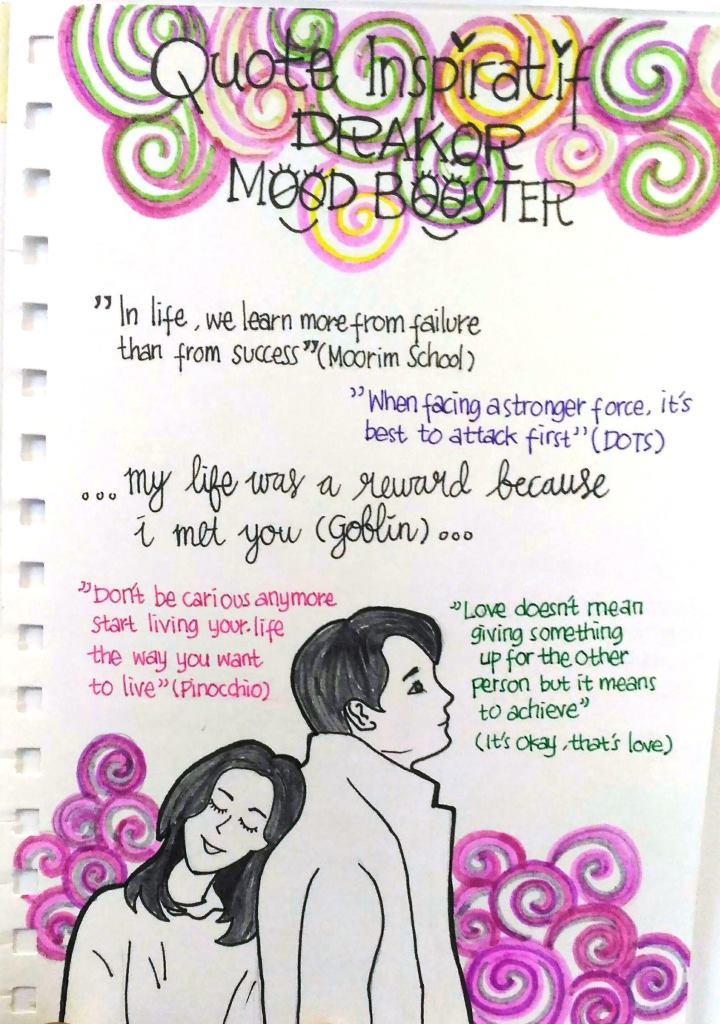 Quote Inspiratif
DRAKOR
MOOD BOOSTER
"In life, we learn more from failure
than from success" (Moorim School)
"When facing a stronger force, it's
best to attack first" (DOTS)
...my life was a reward because
i met you (Goblin)...
"Don't be carious anymore
start living your life
the way you want
to live" (Pinocchio)
"Love doesn't mean
giving something
up for the other
person but it means
to achieve"
(It's okay, that's love)